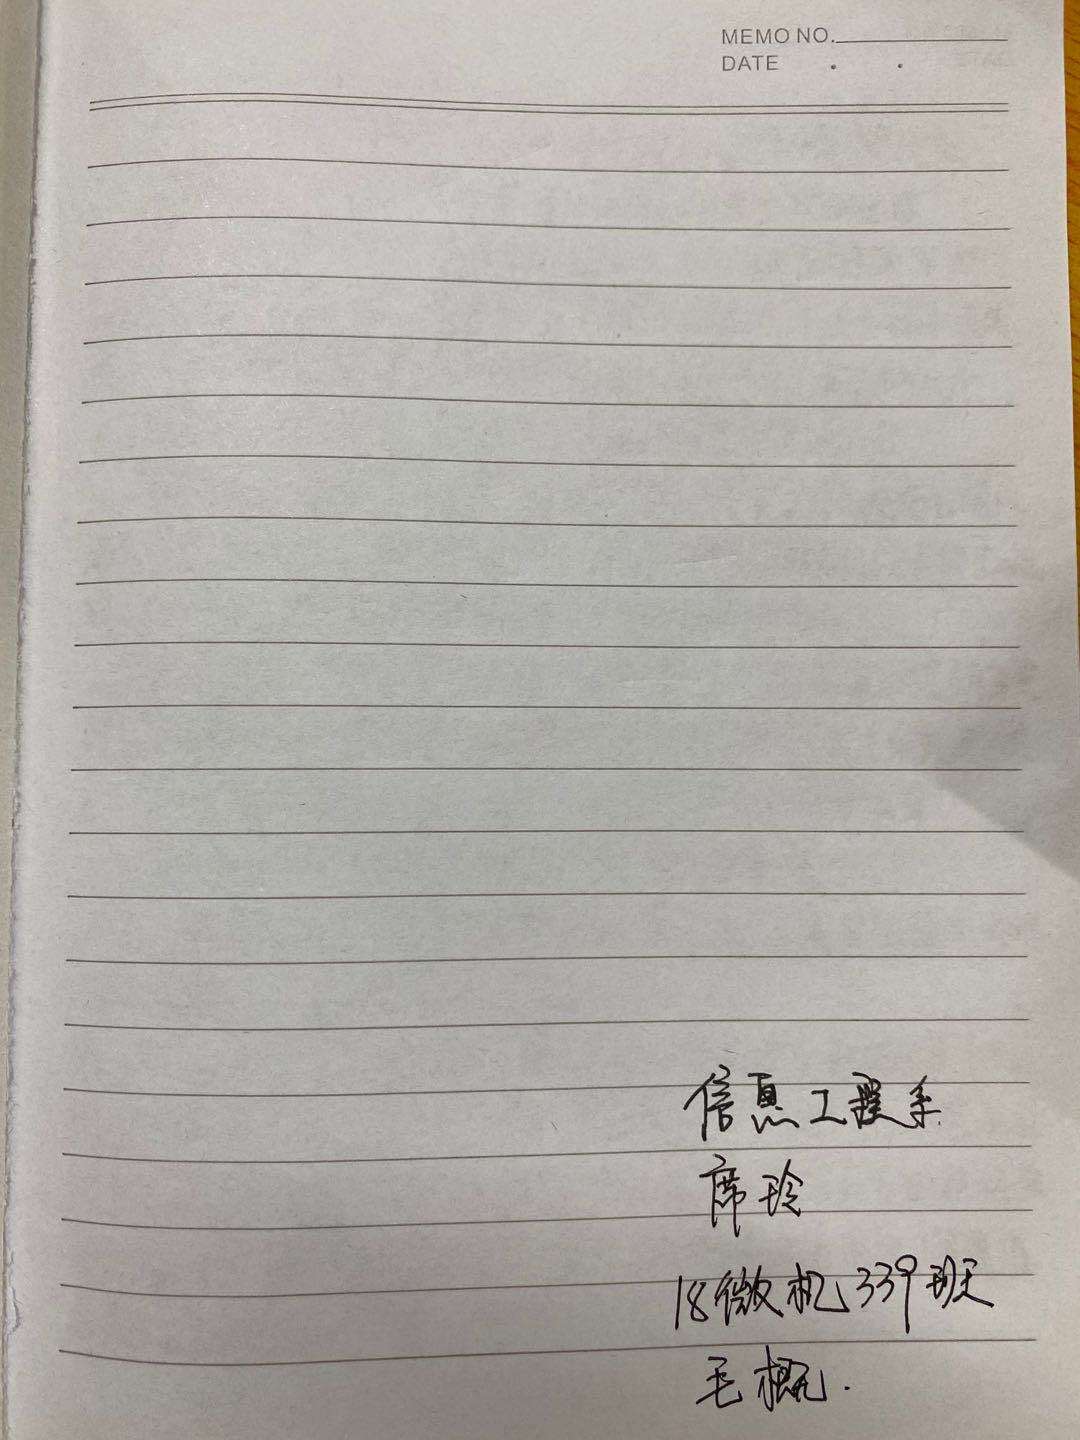 MEMO NO.
DATE . .
信息工程系
席玲
18微机339班
毛概.